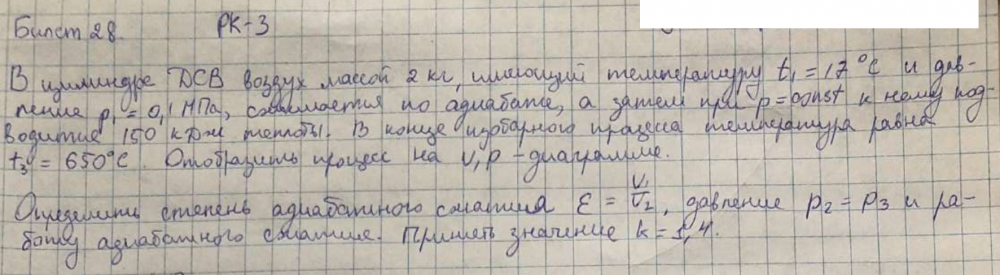 Билет 28. РК-3
В цилиндре ДСВ воздух массой 2 кг, имеющий температуру t₁ = 17°C и дав-
ление p₁ = 0,1 МПа, сжимается по адиабате, а затем при p=const к нему под-
водится 150 кДж теплоты. В конце изобарного процесса температура равна
t₃ = 650°C. Отобразить процесс на v,p - диаграмме.
Определить степень адиабатного сжатия ε = V₁/V₂, давление p₂ = p₃ и ра-
боту адиабатного сжатия. Принять значение k = 1,4.